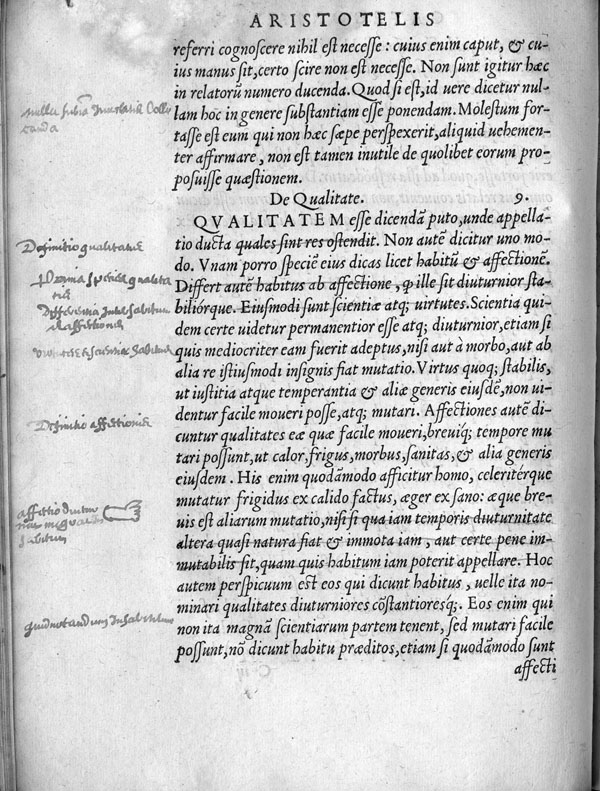 ARISTOTELIS
referri cognoscere nihil est necesse: cuius enim caput, & cu-
ius manus sit, certo scire non est necesse. Non sunt igitur hæc
in relatorũ numero ducenda. Quod si est, id uere dicetur nul-
lam hoc in genere substantiam esse ponendam. Molestum for-
tasse est eum qui non hæc sæpe perspexerit, aliquid uehemen-
ter affirmare, non est tamen inutile de quolibet eorum pro-
posuisse quæstionem.
De Qualitate. 9.
QVALITATEM esse dicendã puto, unde appella-
tio ducta quales sint res ostendit. Non autẽ dicitur uno mo-
do. Vnam porro speciẽ eius dicas licet habitũ & affectionẽ.
Differt autẽ habitus ab affectione, ꝙ ille sit diuturnior sta-
biliórque. Eiusmodi sunt scientiæ atq; uirtutes. Scientia qui-
dem certe uidetur permanentior esse atq; diuturnior, etiam si
quis mediocriter eam fuerit adeptus, nisi aut à morbo, aut ab
alia re istiusmodi insignis fiat mutatio. Virtus quoq; stabilis,
ut iustitia atque temperantia & aliæ generis eiusdẽ, non ui-
dentur facile moueri posse, atq; mutari. Affectiones autẽ di-
cuntur qualitates eæ quæ facile moueri, breuiq́; tempore mu
tari possunt, ut calor, frigus, morbus, sanitas, & alia generis
eiusdem. His enim quodãmodo afficitur homo, celeritérque
mutatur frigidus ex calido factus, æger ex sano: æque bre-
uis est aliarum mutatio, nisi si qua iam temporis diuturnitate
altera quasi natura fiat & immota iam, aut certe pene im-
mutabilis sit, quam quis habitum iam poterit appellare. Hoc
autem perspicuum est eos qui dicunt habitus, uelle ita no-
minari qualitates diuturniores cõstantioresq́;. Eos enim qui
non ita magnã scientiarum partem tenent, sed mutari facile
possunt, nõ dicunt habitu præditos, etiam si quodãmodo sunt
affecti
Definitio qualitatis
Definitio affectionis
affectio
habitum